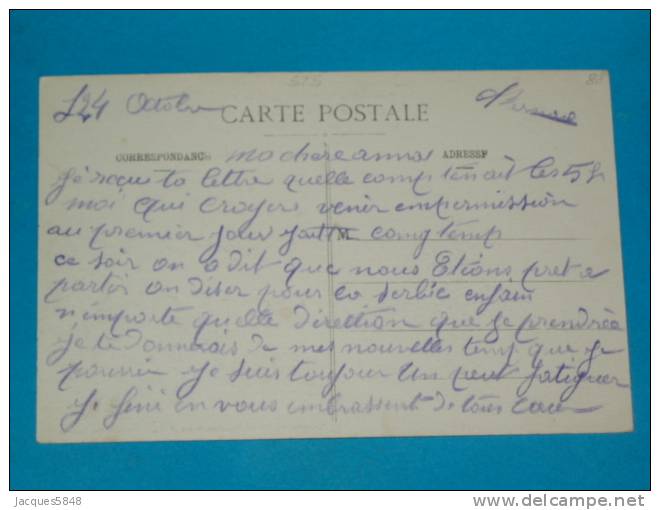 24 Octobre
CARTE POSTALE
CORRESPONDANCE ma chere anna ADRESSE
Jé reçue ta lettre quelle comptenait les 5 f
moi qui croyers venir empermission
au premier jour M. comptemp
ce soir on a dit que nous Etions pret a
partir on diser pour la Serbie enfain
n'importe quelle direttion que je prendrée
je te donnerais de mes nouvelles temp que je
pourrie je suis toujour un peux fatiguer
je fini en vous embrassent de tous cœur
Jacques5848
delcampe.net